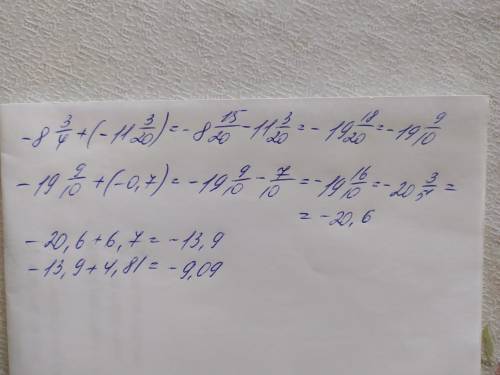 -8 3/4 + (-11 3/20) = -8 15/20 - 11 3/20 = -19 18/20 = -19 9/10
-19 9/10 + (-0,7) = -19 9/10 - 7/10 = -19 16/10 = -20 3/5 =
= -20,6
-20,6 + 6,7 = -13,9
-13,9 + 4,81 = -9,09